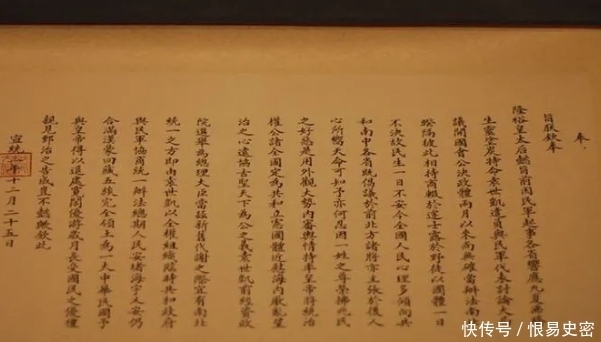 奉
旨朕欽奉
隆裕皇太后懿旨前因民軍起事各省響應九夏沸騰
生靈塗炭特命袁世凱遣員與民軍代表討論大局
議開國會公決政體兩月以來尚無確當辦法南北
暌隔彼此相持商輟於途士露於野徒以國體一日
不決故民生一日不安今全國人民心理多傾向共
和南中各省既倡議於前北方諸將亦主張於後人
心所嚮天命可知予亦何忍因一姓之尊榮拂兆民
之好惡是用外觀大勢內審輿情特率皇帝將統治
權公諸全國定為共和立憲國體近慰海內厭亂望
治之心遠協古聖天下為公之義袁世凱前經資政
院選舉為總理大臣當茲新舊代謝之際宜有南北
統一之方即由袁世凱以全權組織臨時共和政府
與民軍協商統一辦法總期人民安堵海宇乂安仍
合滿漢蒙回藏五族完全領土為一大中華民國予
與皇帝得以退處寬閒優游歲月長受國民之優禮
親見郅治之告成豈不懿歟欽此
宣統三年十二月二十五日
快传号／恨易史密